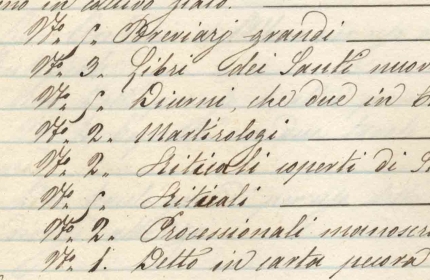 in cattivo stato.
N.° 5. Breviarj grandi
N.° 3. Libri dei Santi nuov
N.° 5. Diurni, che due in
N.° 2. Martirologi
N.° 2. Rituali coperti di
N.° 5. Rituali
N.° 2. Processionali manoscr
N.° 1. Detto in carta pecora